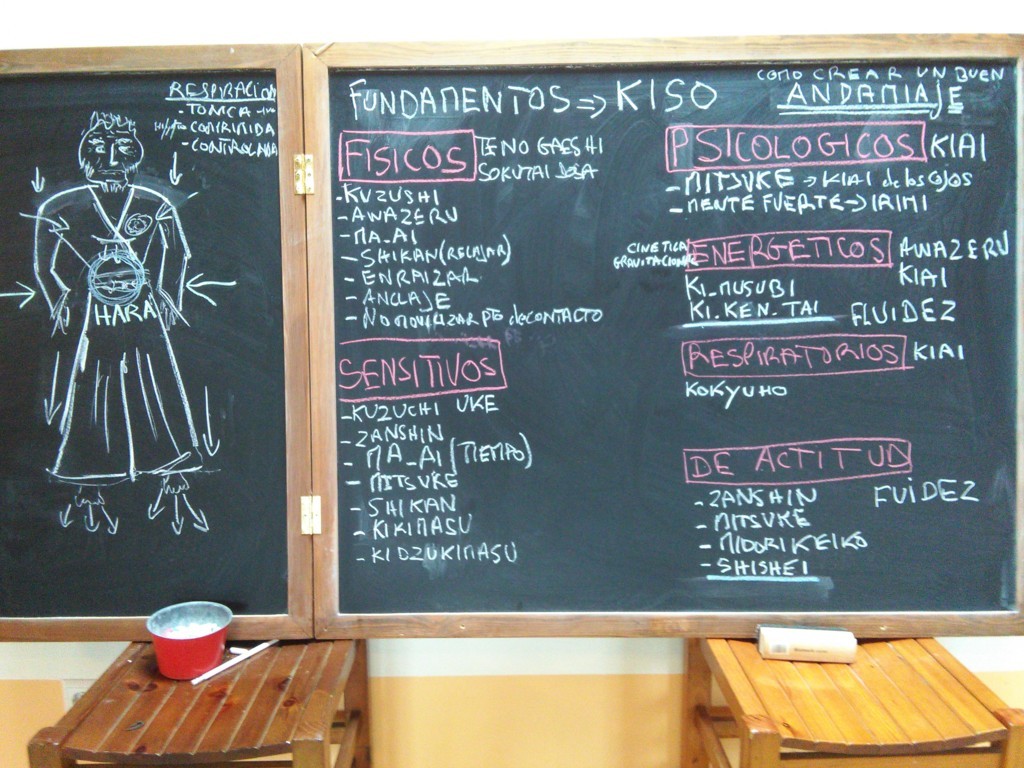 RESPIRACION
- TOMA
COMPRIMIDA
- CONTROLADA
HARA
FUNDAMENTOS ⇒ KISO
COMO CREAR UN BUEN
ANDAMIAJE
FISICOS TENO GAESHI
SOKUTAI DOSA
- KUZUSHI
- AWAZERU
- MA_AI
- SHIKAN (RELAJAR)
- ENRAIZAR
- ANCLAJE
- NO MOVILIZAR PTO de CONTACTO
SENSITIVOS
- KUZUCHI UKE
- ZANSHIN
- MA_AI (TIEMPO)
- MITSUKE
- SHIKAN
- KIKIMASU
- KIDZUKIMASU
PSICOLOGICOS KIAI
- MITSUKE → KIAI de los OJOS
- MENTE FUERTE → IRIMI
CINETICA
ENERGETICOS AWAZERU
KIAI
KI_MUSUBI
KI_KEN_TAI FLUIDEZ
RESPIRATORIOS KIAI
KOKYUHO
DE ACTITUD
- ZANSHIN FUIDEZ
- MITSUKE
- MIDORI KEIKO
- SHISHEI